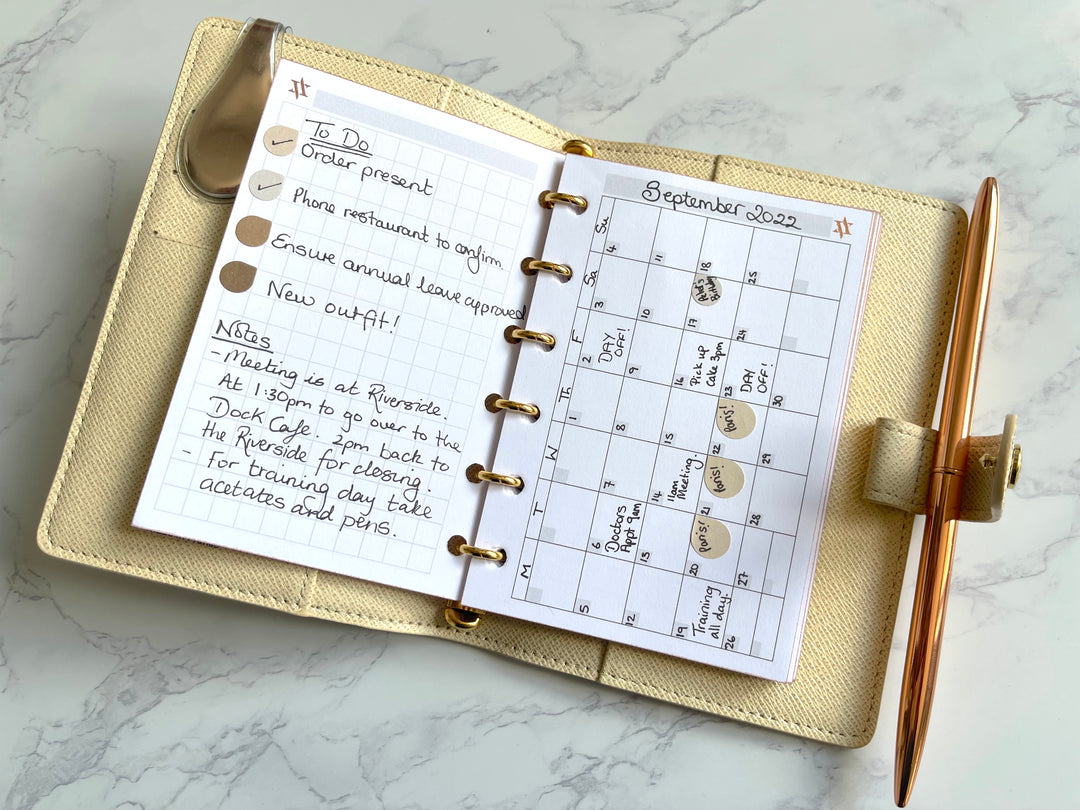 To Do
Order present
Phone restaurant to confirm.
Ensure annual leave approved
New outfit!
Notes
- Meeting is at Riverside.
At 1:30pm to go over to the
Dock Cafe. 2pm back to
the Riverside for closing.
- For training day take
acetates and pens.
September 2022
M T W Th F Sa Su
1 2 3 4
DAY
OFF!
5 6 7 8 9 10 11
Doctors
Appt 9am
12 13 14 15 16 17 18
11am
Meeting.
Pick up
Cake 3pm
Birthday
19 20 21 22 23 24 25
Training
all day!
Paris!
Paris!
Paris!
DAY
OFF!
26 27 28 29 30